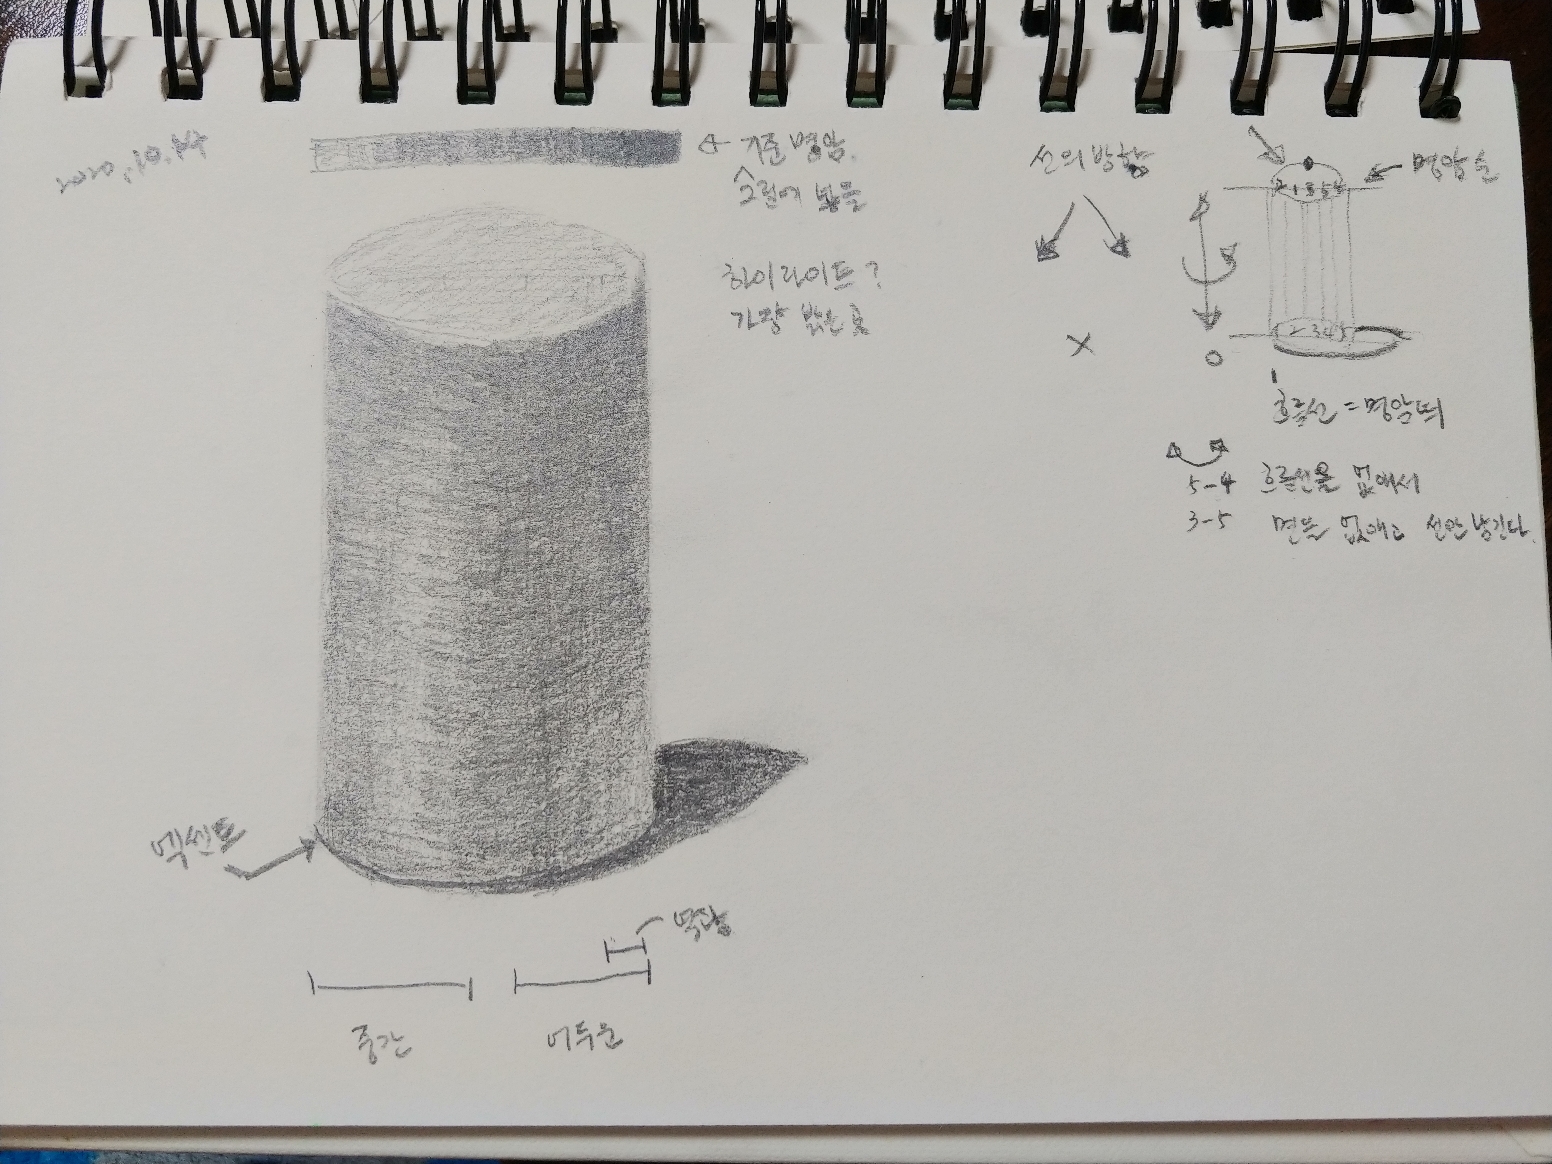 2020.10.14
기준명암
그림에 넣음
하이라이트?
가장 밝은 곳
선의 방향
명암 순
2 1 3 5 4
2 3 4 5
흐름선 = 명암띠
5-4 흐름선을 없애서
3-5 면은 없애고 선만 남긴다.
엑센트
반사광
중간
어두운